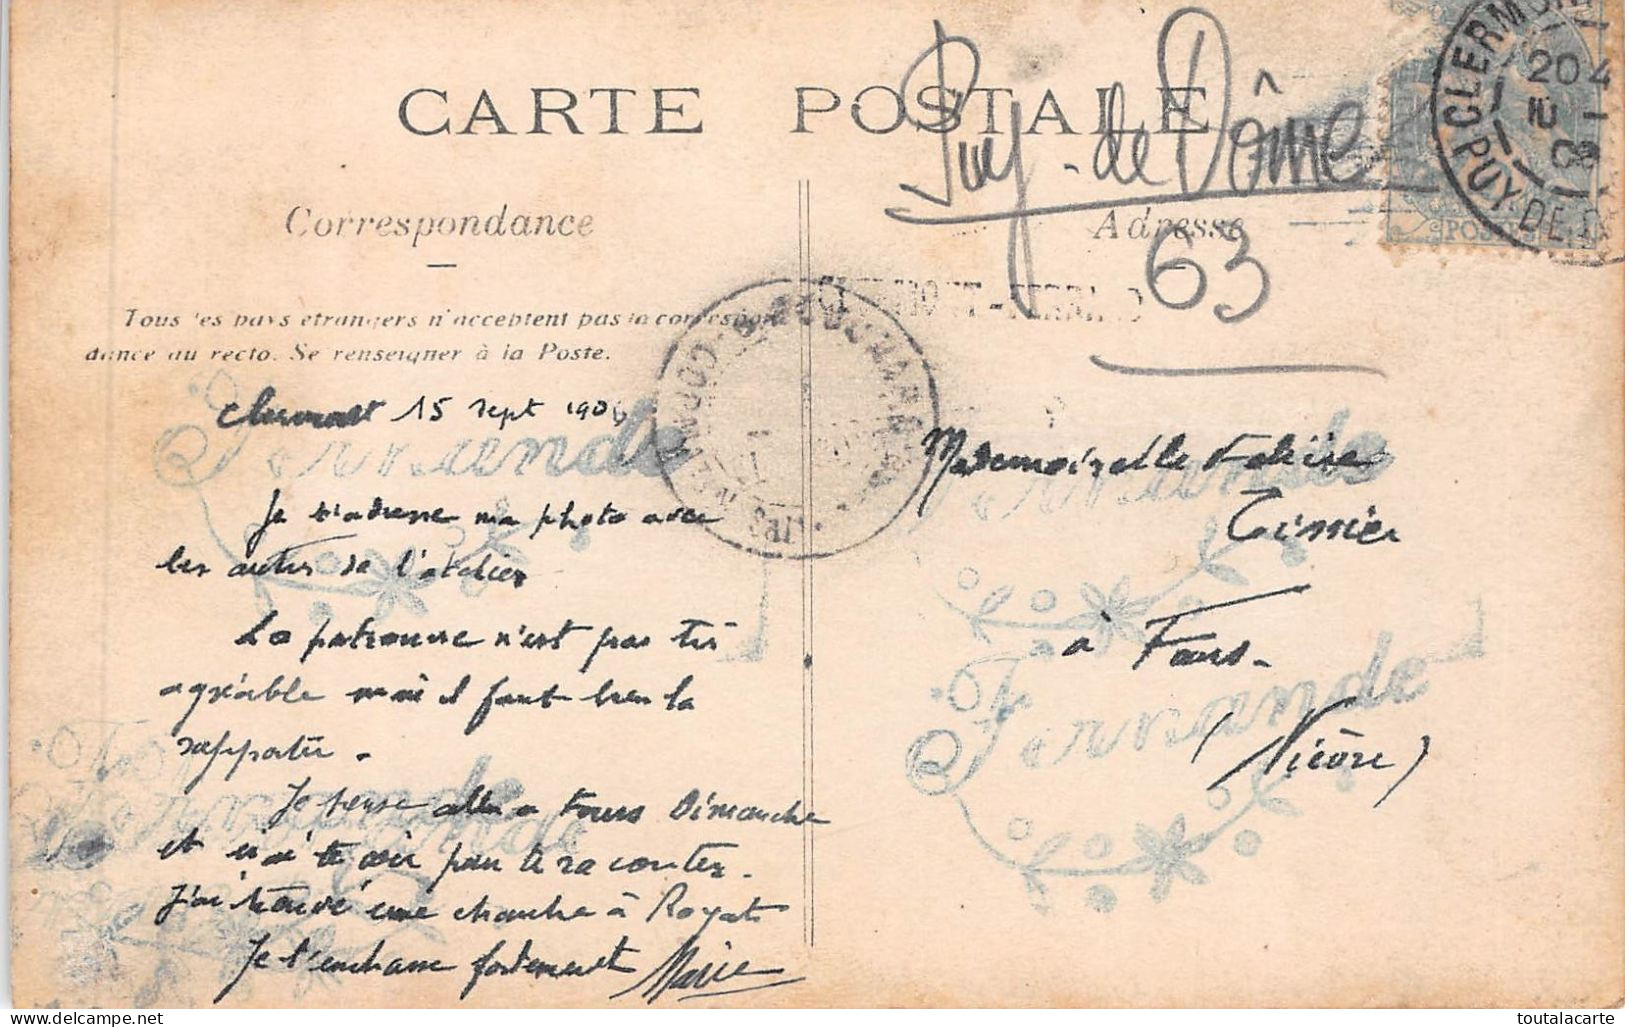 CARTE POSTALE
Puy-de Dôme
63
Correspondance
Adresse
Tous les pays étrangers n'acceptent pas la correspon-
dance au recto. Se renseigner à la Poste.
CLERMONT
PUY-DE-D
20 4
Clermont 15 sept 190
Je t'adresse ma photo avec
les autres de l'atelier
La patronne n'est pas très
agréable mais il faut bien la
supporter.
Je pense aller a Fours Dimanche
et irai te voir pour te raconter.
J'ai trouvé une chambre à Royat
Je t'embrasse fortement Marie
Mademoiselle
à Fours.
(Nièvre)
Fernande
Fernande
Fernande
Fernande
POSTES
toutalacarte